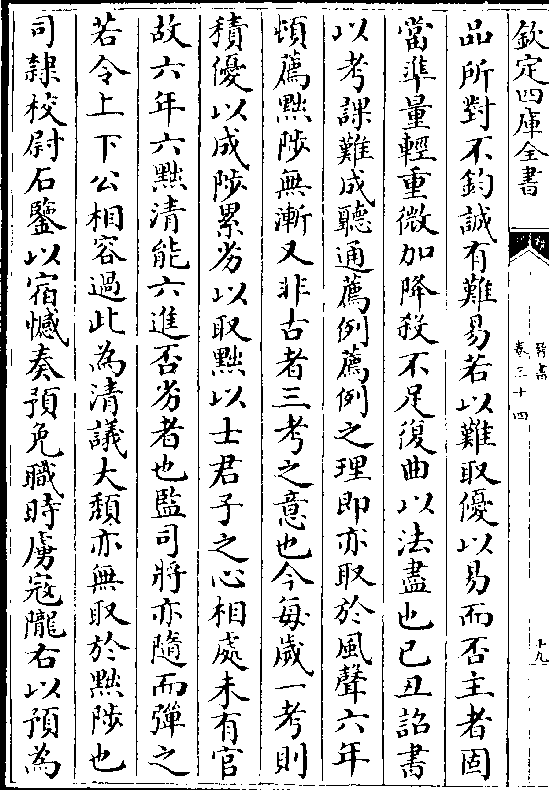 欽定四庫全書
晉書
卷三十四
十九
品所對不鈞誠有難易若以難取優以易而否主者固
當準量輕重微加降殺不足復曲以法盡也已丑詔書
以考課難成聽通薦例薦例之理即亦取於風聲六年
頓薦黜陟無漸又非古者三考之意也今每歲一考則
積優以成陟累劣以取黜以士君子之心相處未有官
故六年六黜清能六進否劣者也監司將亦隨而彈之
若令上下公相容過此為清議大頽亦無取於黜陟也
司隸校尉石鑒以宿憾奏預免職時虜寇隴右以預為